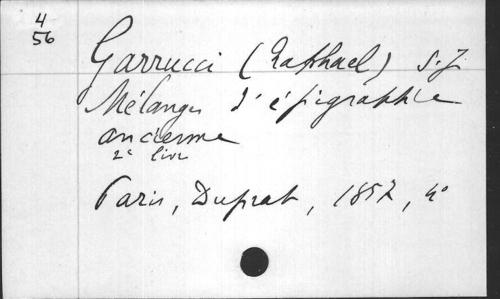 4
56
Garrucci (Raphael) S.J.
Mélanges d'épigraphie
ancienne
2e livr
Paris, Duprat, 1857, 4°